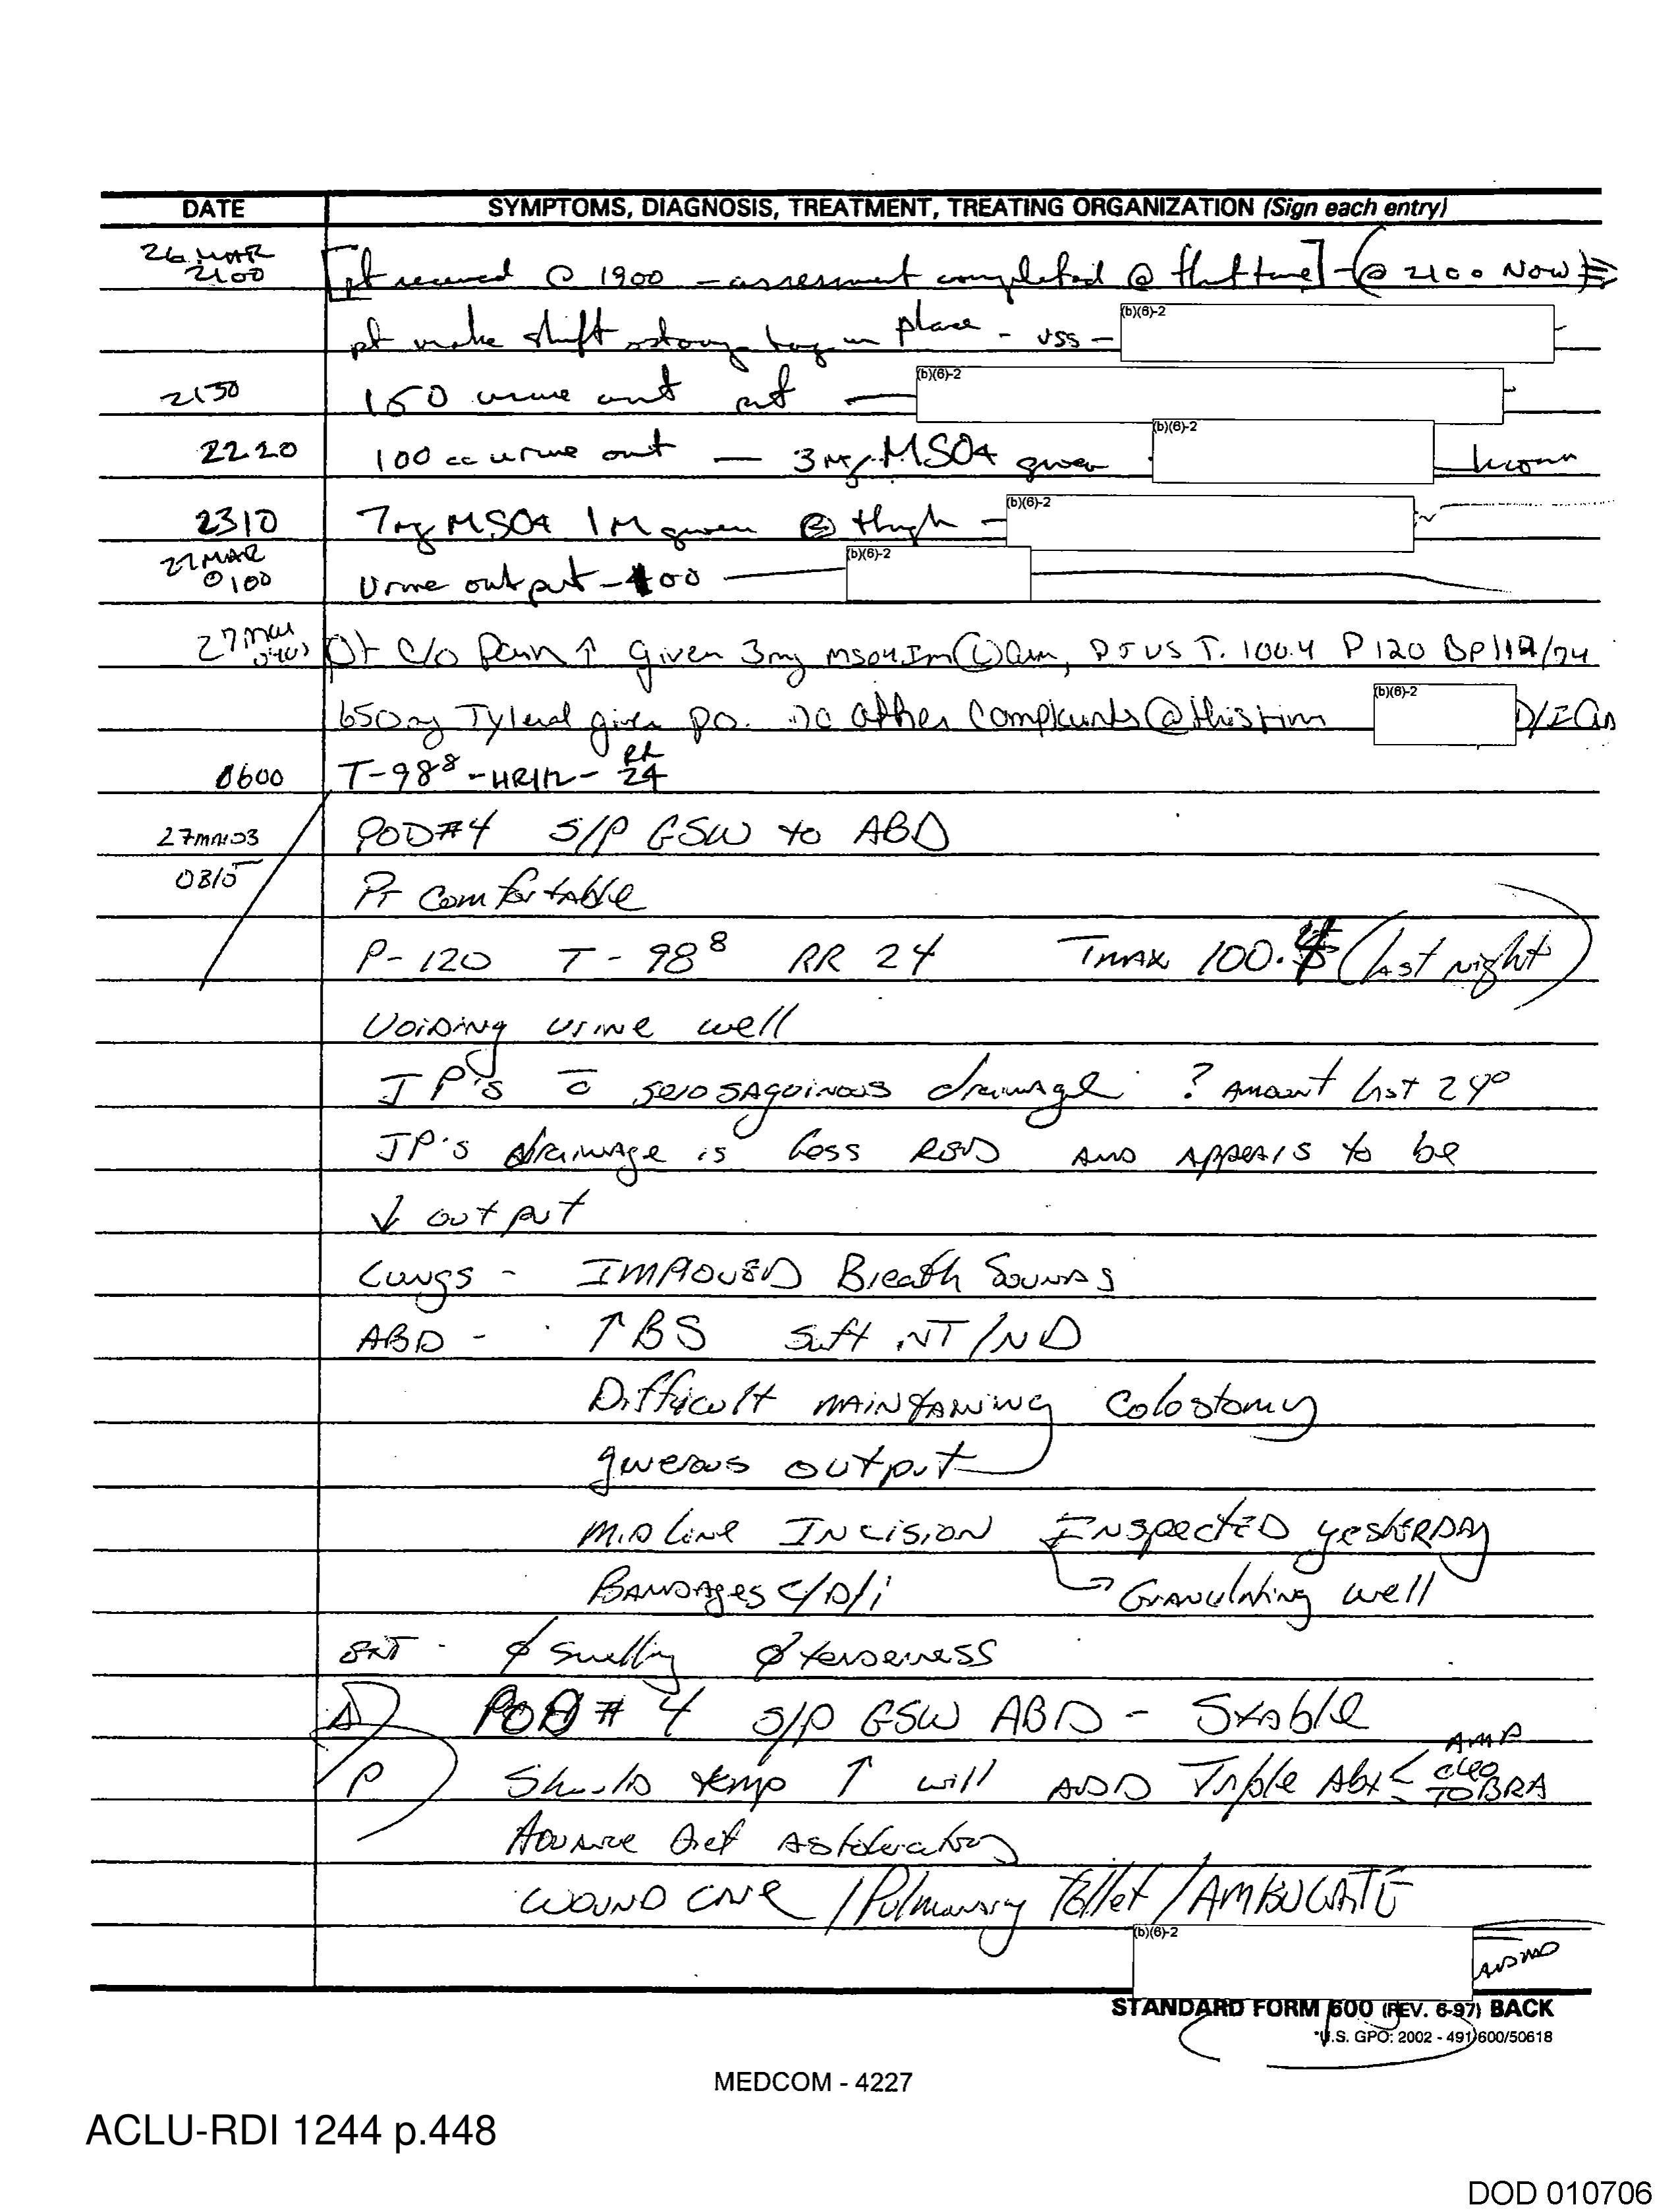 DATE SYMPTOMS, DIAGNOSIS, TREATMENT, TREATING ORGANIZATION (Sign each entry)
26 MAR
2100 [pt received @ 1900 - assessment completed @ that time] - (@ 2100 Now)
pt make shift ostomy bag in place - VSS - (b)(6)-2
2130 150 urine out (b)(6)-2
2220 100 cc urine out — 3 mg MSO4 given (b)(6)-2
2310 7mg MSO4 IM given thigh - (b)(6)-2
27 MAR
0100 Urine output - 400 (b)(6)-2
27 Mar Pt c/o Pain ↑ given 3mg MSO4 Im (L) arm, T. 100.4 P 120 BP 112/74
650mg Tylenol given po. no other Complaints @ this time (b)(6)-2
0600 T-98⁸ - HR112 - RR 24
27 MAR 03 POD#4 S/P GSW to ABD
0815 Pt Comfortable
P-120 T-98⁸ RR 24 TMAX 100.4 (last night)
Voiding urine well
JP's c̄ serosaguinous drainage ? Amount last 24°
JP's drainage is less RED AND APPEARS to be
↓ output
Lungs - IMPROVED Breath Sounds
ABD - ↑BS Soft NT/ND
Difficult MAINTAINING Colostomy
generous output
MIDLINE INCISION INSPECTED yesterday
BANDAges C/D/i → Granulating well
EXT - ø swelling ø tenderness
A) POD # 4 S/P GSW ABD - Stable
P) Should temp ↑ will ADD Triple Abx < AMP
CLEO
TOBRA
Advance diet as toleration
WOUND CARE / Pulmonary Toilet / AMBULATE
(b)(6)-2
STANDARD FORM 600 (REV. 6-97) BACK
*U.S. GPO: 2002 - 491/600/50618
MEDCOM - 4227
ACLU-RDI 1244 p.448
DOD 010706